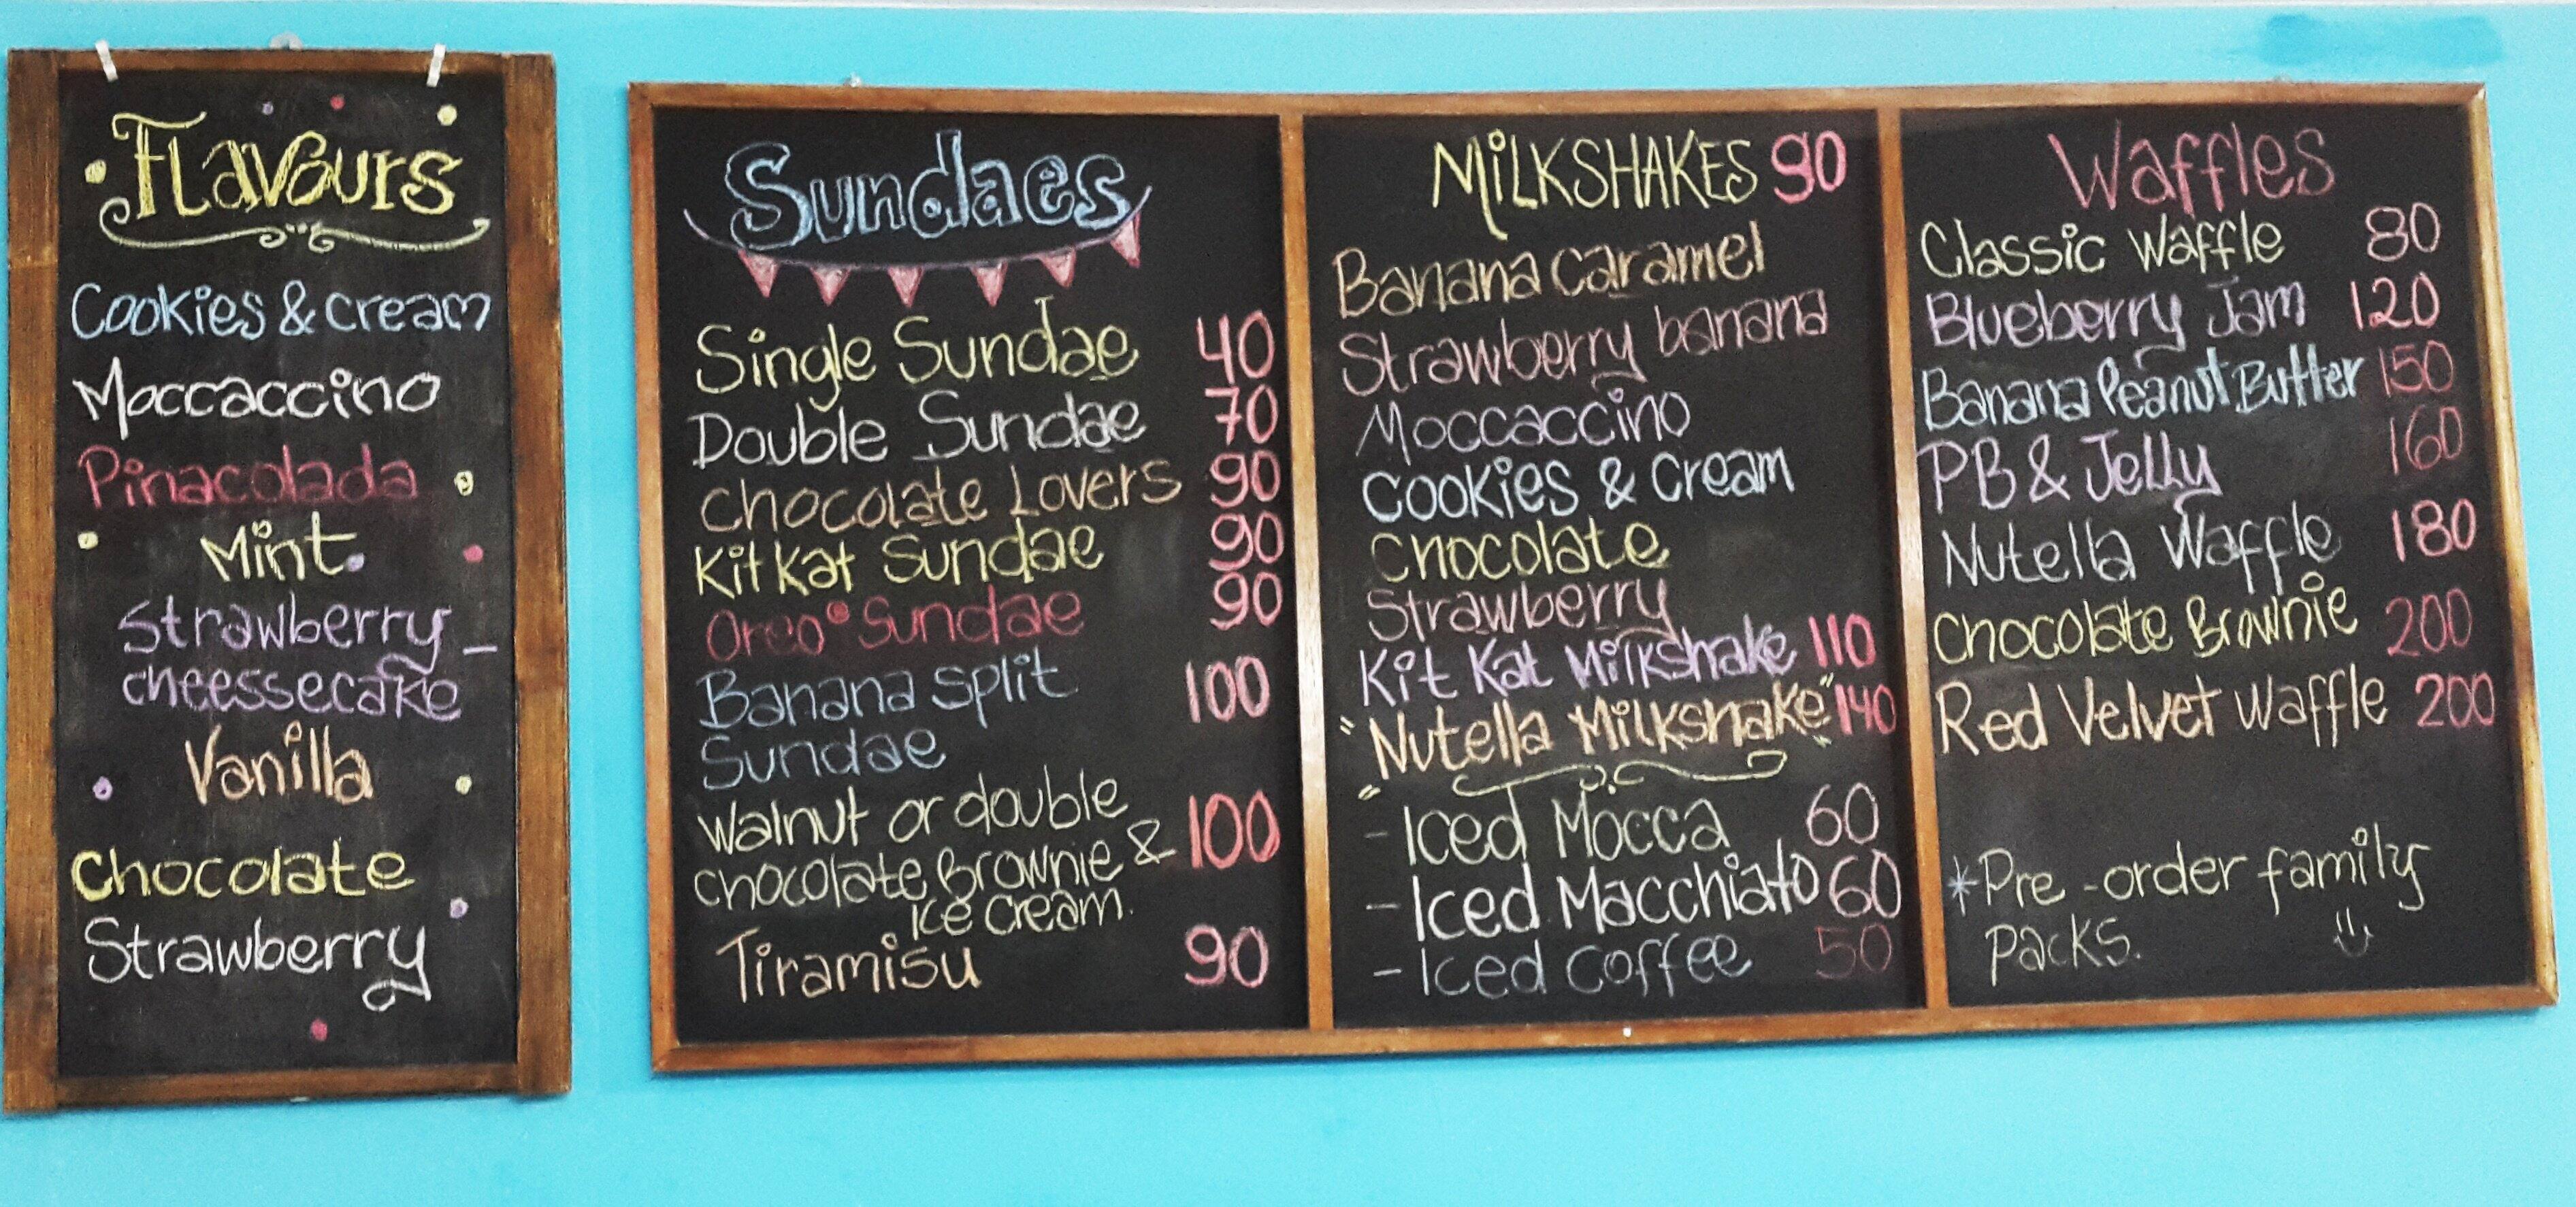 Flavours
Cookies & cream
Moccaccino
Pinacolada
Mint
Strawberry -
cheessecake
Vanilla
Chocolate
Strawberry
Sundaes
Single Sundae 40
Double Sundae 70
Chocolate Lovers 90
Kit Kat Sundae 90
Oreo Sundae 90
Banana split 100
Sundae
Walnut or double
chocolate Brownie & 100
Ice cream.
Tiramisu 90
MILKSHAKES 90
Banana caramel
Strawberry banana
Moccaccino
Cookies & cream
Chocolate
Strawberry
Kit Kat Milkshake 110
"Nutella Milkshake" 140
- Iced Mocca 60
- Iced Macchiato 60
- Iced Coffee 50
Waffles
Classic Waffle 80
Blueberry Jam 120
Banana Peanut Butter 150
PB & Jelly 160
Nutella Waffle 180
Chocolate Brownie 200
Red Velvet Waffle 200
*Pre-order family
packs.